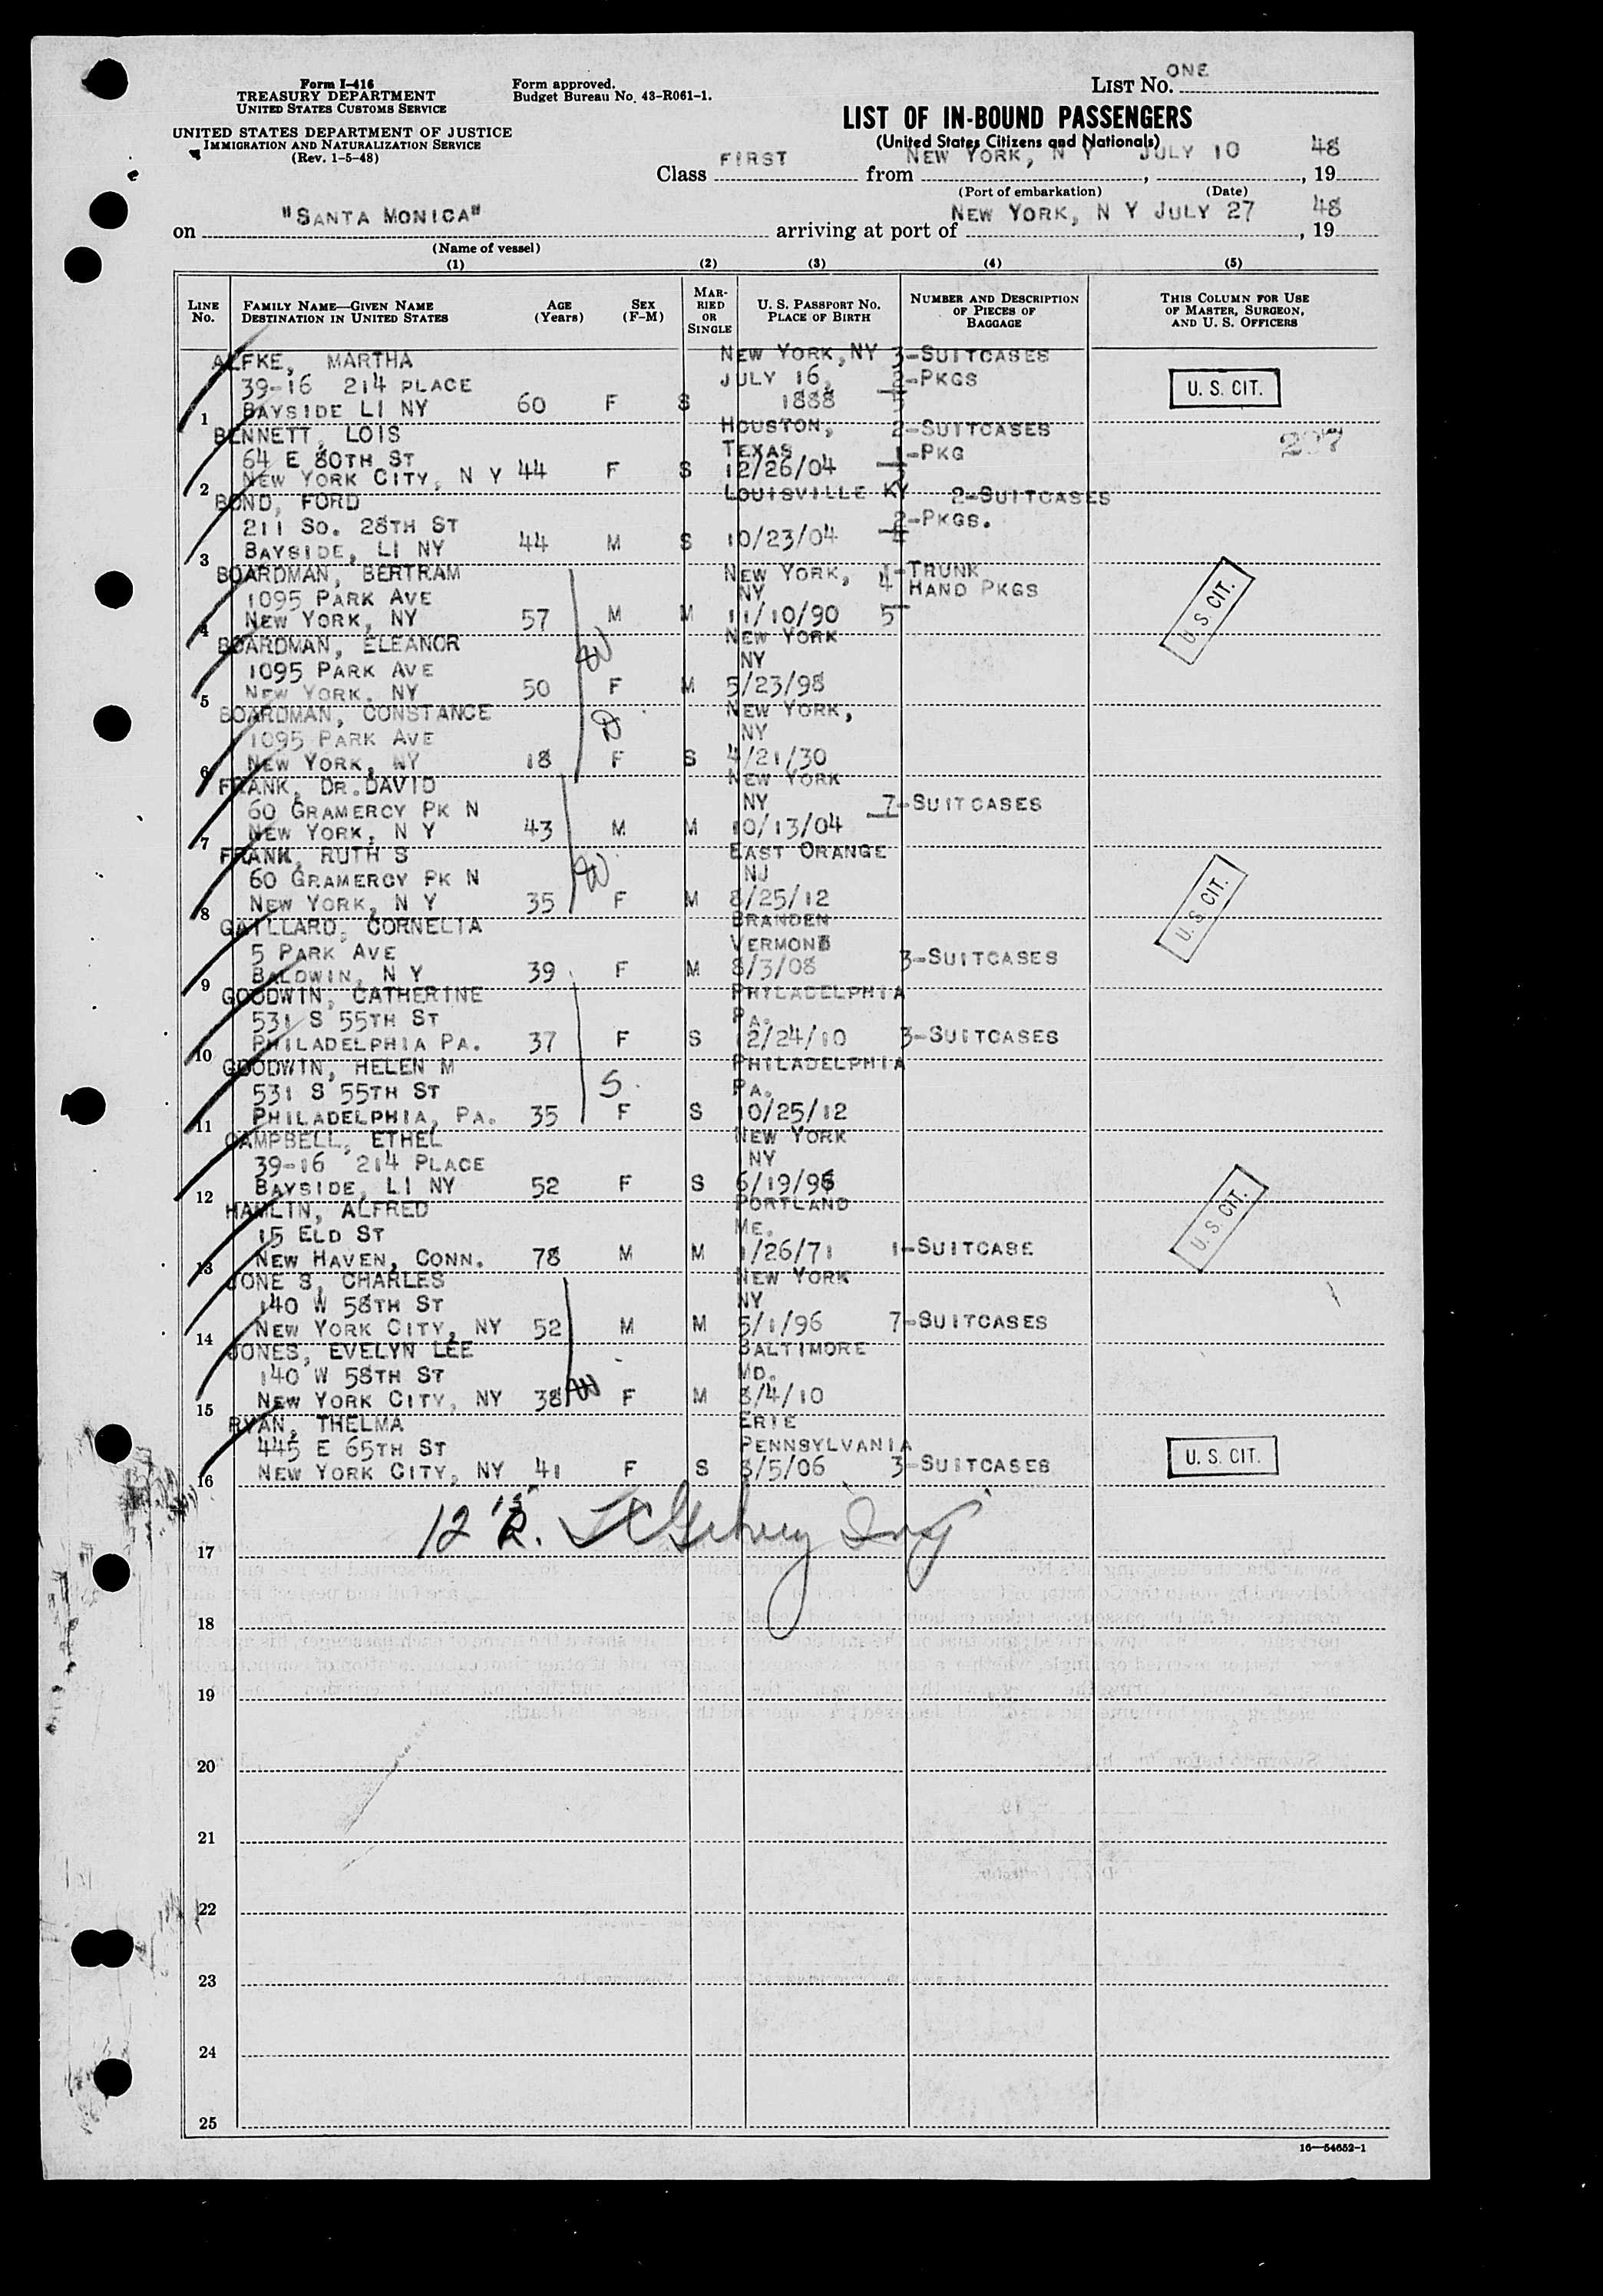 Form I-416
TREASURY DEPARTMENT
UNITED STATES CUSTOMS SERVICE
UNITED STATES DEPARTMENT OF JUSTICE
IMMIGRATION AND NATURALIZATION SERVICE
(Rev. 1-5-48)
Form approved.
Budget Bureau No. 43-R061-1.
LIST No. ONE
LIST OF IN-BOUND PASSENGERS
(United States Citizens and Nationals)
Class FIRST from NEW YORK, N Y, JULY 10, 1948
(Port of embarkation) (Date)
on "SANTA MONICA" arriving at port of NEW YORK, N Y JULY 27, 1948
(Name of vessel)
(1) (2) (3) (4) (5)
LINE No. FAMILY NAME—GIVEN NAME DESTINATION IN UNITED STATES AGE (Years) SEX (F-M) MARRIED OR SINGLE U. S. PASSPORT No. PLACE OF BIRTH NUMBER AND DESCRIPTION OF PIECES OF BAGGAGE THIS COLUMN FOR USE OF MASTER, SURGEON, AND U. S. OFFICERS
ALFKE, MARTHA NEW YORK,NY 3-SUITCASES
39-16 214 PLACE JULY 16, 2-PKGS U. S. CIT.
1 BAYSIDE LI NY 60 F S 1888 5
BENNETT, LOIS HOUSTON, 2-SUITCASES
64 E 80TH ST TEXAS 1-PKG
2 NEW YORK CITY, N Y 44 F S 12/26/04 3
BOND, FORD LOUISVILLE KY 2-SUITCASES
211 SO. 28TH ST 2-PKGS.
3 BAYSIDE, LI NY 44 M S 10/23/04 4
BOARDMAN, BERTRAM NEW YORK, 1-TRUNK
1095 PARK AVE NY 4 HAND PKGS
4 NEW YORK, NY 57 M M 11/10/90 5 U. S. CIT.
BOARDMAN, ELEANOR NEW YORK
1095 PARK AVE NY
5 NEW YORK, NY 50 F M 5/23/98
BOARDMAN, CONSTANCE NEW YORK,
1095 PARK AVE NY
6 NEW YORK, NY 18 F S 4/21/30
FRANK, DR.DAVID NEW YORK
60 GRAMERCY PK N NY 7-SUITCASES
7 NEW YORK, N Y 43 M M 10/13/04
FRANK, RUTH S EAST ORANGE
60 GRAMERCY PK N NJ
8 NEW YORK, N Y 35 F M 8/25/12 U. S. CIT.
GAILLARD, CORNELIA BRANDEN
5 PARK AVE VERMONT 3-SUITCASES
9 BALDWIN, N Y 39 F M 8/3/08
GOODWIN, CATHERINE PHILADELPHIA
531 S 55TH ST PA.
10 PHILADELPHIA PA. 37 F S 12/24/10 3-SUITCASES
GOODWIN, HELEN M PHILADELPHIA
531 S 55TH ST S. PA.
11 PHILADELPHIA, PA. 35 F S 10/25/12
CAMPBELL, ETHEL NEW YORK
39-16 214 PLACE NY
12 BAYSIDE, LI NY 52 F S 6/19/96
HAMLIN, ALFRED PORTLAND
15 ELD ST ME. U. S. CIT.
13 NEW HAVEN, CONN. 78 M M 1/26/71 1-SUITCASE
JONE S, CHARLES NEW YORK
140 W 58TH ST NY
14 NEW YORK CITY, NY 52 M M 5/1/96 7-SUITCASES
JONES, EVELYN LEE BALTIMORE
140 W 58TH ST MD.
15 NEW YORK CITY, NY 38 F M 8/4/10
RYAN, THELMA ERIE
445 E 65TH ST PENNSYLVANIA U. S. CIT.
16 NEW YORK CITY, NY 41 F S 8/5/06 3-SUITCASES
12
17
18
19
20
21
22
23
24
25
16—54652-1